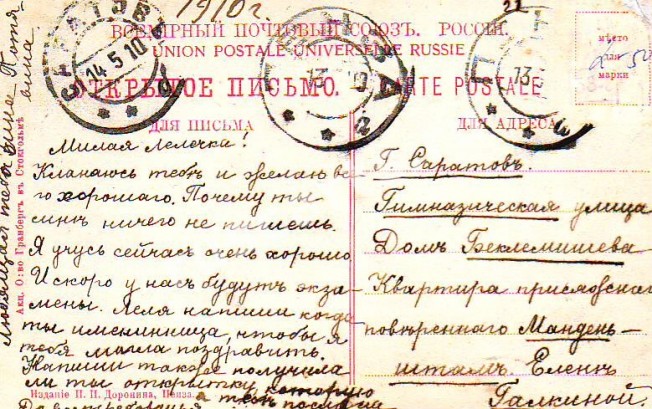 1910 г.
ВСЕМІРНЫЙ ПОЧТОВЫЙ СОЮЗЪ. РОССІЯ.
UNION POSTALE UNIVERSELLE RUSSIE
ОТКРЫТОЕ ПИСЬМО. CARTE POSTALE
мѣсто
для
марки
САРАТОВЪ
14 5 10
ДЛЯ ПИСЬМА
Милая Лелечка!
Кланяюсь тебѣ и желаю все-
го хорошаго. Почему ты
мнѣ ничего не пишешь.
Я учусь сейчасъ очень хорошо
И скоро у насъ будутъ экза-
мены. Леля напиши когда
ты именинница, чтобы я
тебя могла поздравить.
Напиши также получила
ли ты открытку которую
я тебѣ послала
Любящая тебя
Акц. О-во Гранбергъ въ Стокгольмѣ
Изданіе П. П. Доронина, Пенза.
ДЛЯ АДРЕСА
Г. Саратовъ.
Гимназическая улица
Домъ Беклемишева
Квартира присяжнаго
повѣреннаго Мандень-
штамъ. Еленѣ
Галкиной.